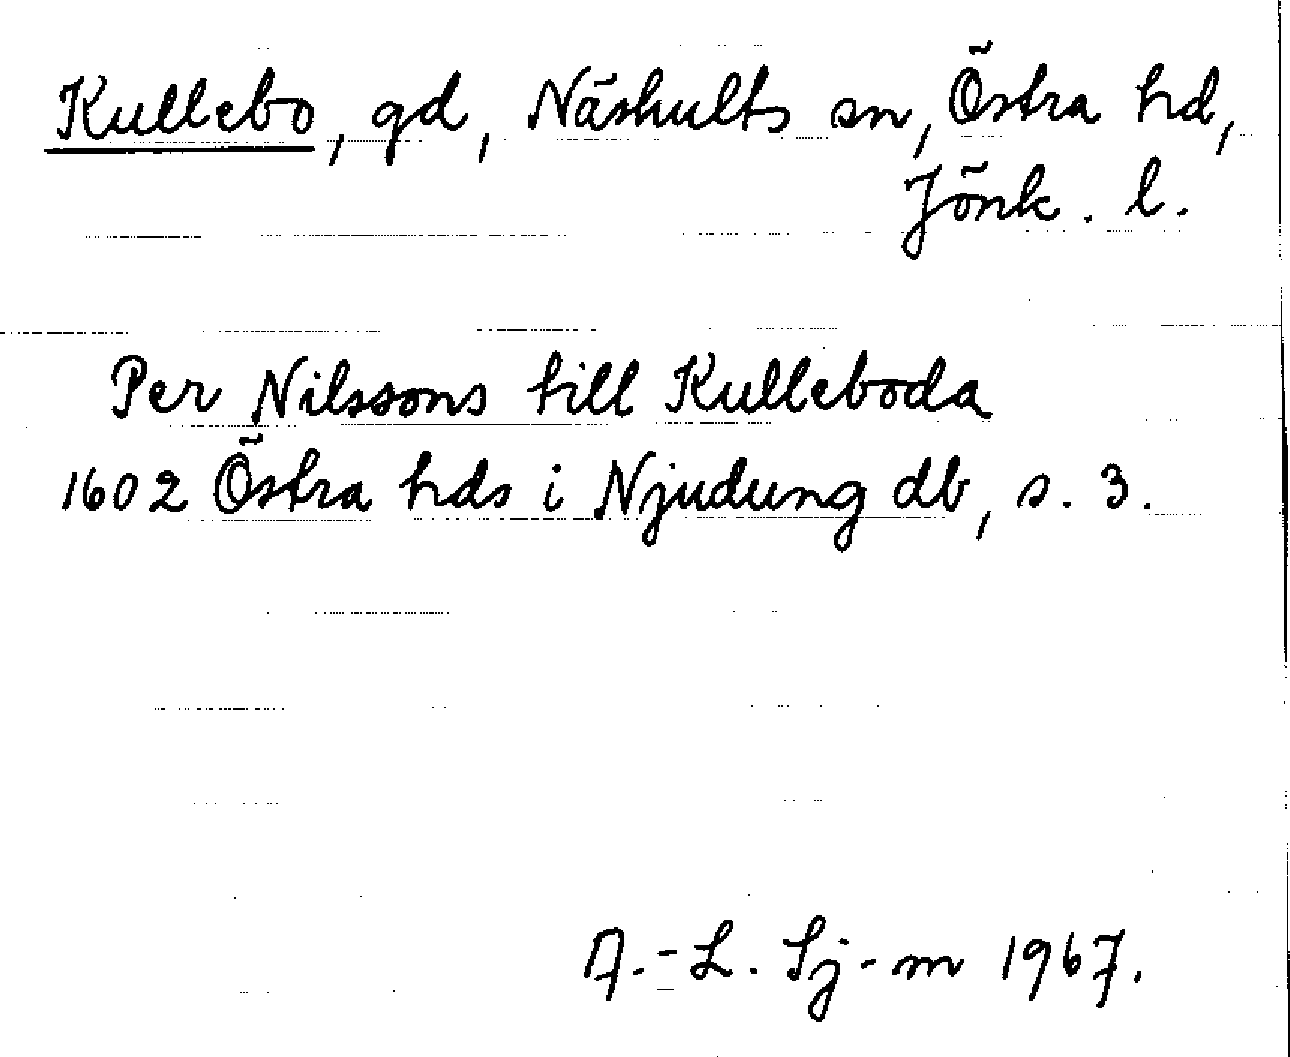 Kullebo, gd, Näshults sn, Östra hd,
Jönk. l.
Per Nilssons till Kulleboda
1602 Östra hds i Njudung db, s. 3.
A.-L. Sj-m 1967.